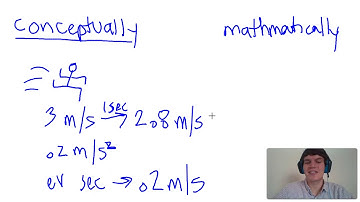 conceptually
mathmatically
3 m/s 1 sec → 2.8 m/s
.02 m/s²
ev sec → .02 m/s